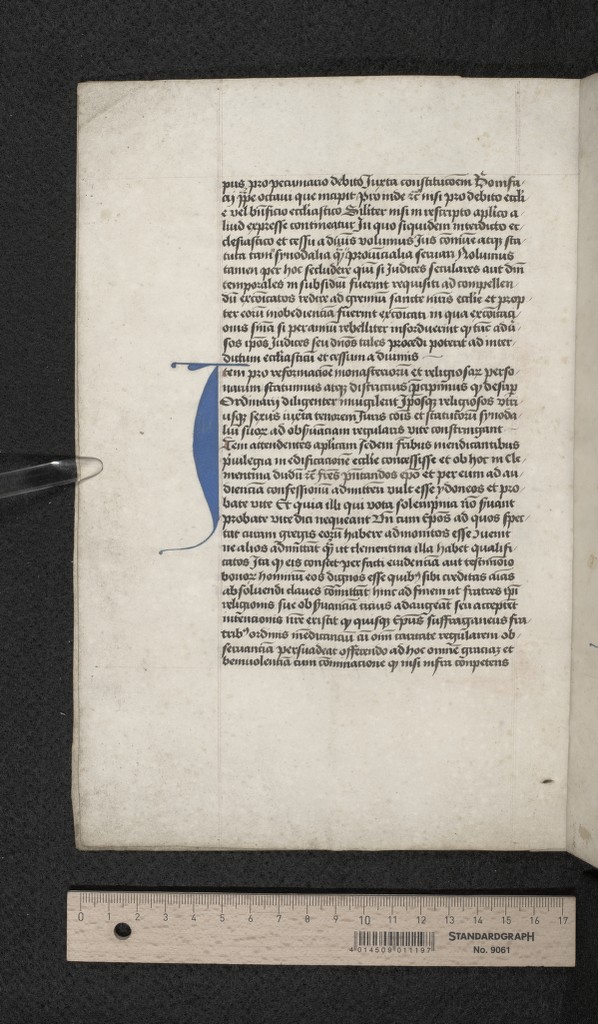 pus pro pecuniario debito Juxta constitucōem Bonifa-
cij ꝑpe octaui que incipit Prouide ꝛc̄ nisi pro debito eccli
e vel bn̄ficio eccliastico Similiter nisi in rescripto aplico a
liud expresse contineatur In quo siquidem interdicto ec
clesiastico et cessu a diuis volumus Jus cōmune atqꝫ sta
tuta tam sinodalia qͣꝫ prouincialia seruari Nolumus
tamen per hoc secludere quin si Judices seculares aut dn̄i
temporales in subsidiū fuerint requisiti ad compellen-
dū excōicatos redire ad gremiū sancte mr̄is ecclie et prop
ter eorū inobedienciā fuerint excōicati in qua excōicaci
onis sn̄ia si per annū rebelliter insorduerint qꝫ tūc aduͥ
sos ipōs Judices seu dn̄os tales procedi poterit ad inter
dictum eccliasticū et cessum a diuinis
Item pro reformacione monasteriorū et religiosaꝝ perso
narum statuimus atqꝫ districtius p̄cipimus qꝫ desuper
Ordinarij diligenter inuigilent Iposqꝫ religiosos vtri
usqꝫ sexus iuxta tenorem Juris cōis et statutorū synoda
liū suoꝝ ad obseruāciam regularis vite constringant
Item attendentes aplicam sedem fribus mendicantibus
priuilegia in edificacionē ecclie concessisse et ob hoc in Cle
mentina dudū ꝛc̄ fres p̄ntandos ep̄o et per eum ad au
dienciā confessionū admitti vult esse ydoneos et pro
bate vite Et quia illi qui vota solempnia nō seruant
probate vite dici nequeant Vn̄ cum Ep̄os ad quos spec
tat curam gregis eorū habere admonitos esse Juuerit
ne alios admittāt qͣꝫ vt clementina illa habet qualifi
catos Ita qꝫ eis constet per facti euidenciā aut testimōio
bonoꝝ hominū eos dignos esse quibꝫ sibi creditas aīas
absoluendi claues cōmittāt hinc ad finem vt fratres ip̄i
religionis sue obseruancia cicius adaugeāt seu acceptēt
intencionis nr̄e existit qꝫ quisqꝫ Epūs suffraganeus fra
tribꝫ ordinis mēdicanciū cū om̄i caritate regularem ob-
seruanciā persuadeat offerendo ad hoc omnē graciaꝫ et
beniuolenciā cum cōminacione qꝫ nisi infra cōmpetens
0 1 2 3 4 5 6 7 8 9 10 11 12 13 14 15 16 17
4 014509 011197
STANDARDGRAPH
No. 9061